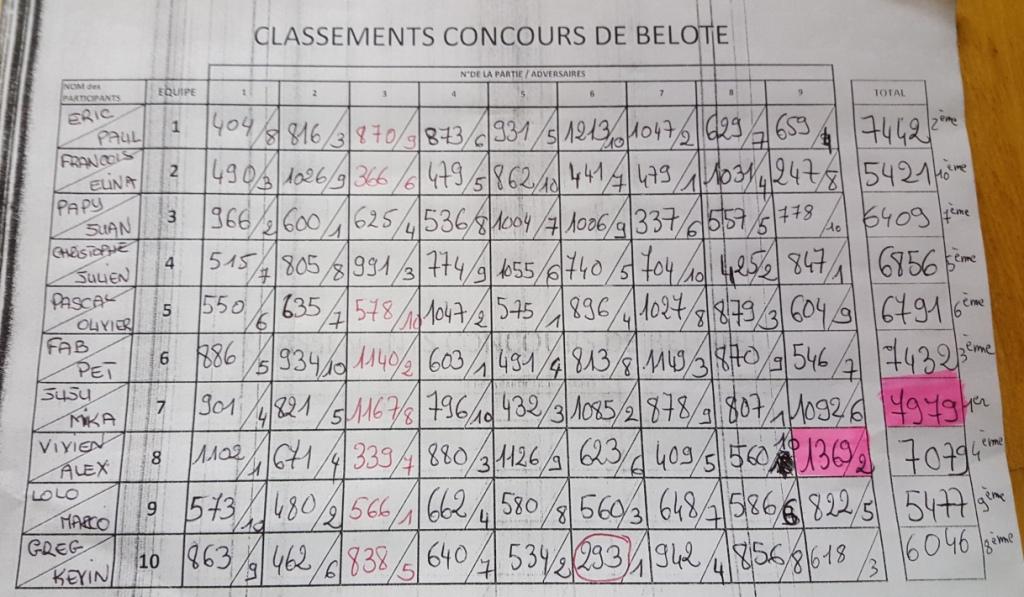 CLASSEMENTS CONCOURS DE BELOTE
N°DE LA PARTIE / ADVERSAIRES
NOM des PARTICIPANTS EQUIPE 1 2 3 4 5 6 7 8 9 TOTAL
ERIC PAUL 1 404/8 816/3 870/9 873/6 931/5 1213/10 1047/2 629/7 659/4 7442 2ème
FRANCOIS ELINA 2 490/3 1026/9 366/6 479/5 862/10 441/7 479/1 1031/4 247/8 5421 10ème
PAPY JUAN 3 966/2 600/1 625/4 536/8 1004/7 1006/9 337/6 557/5 778/10 6409 7ème
CHRISTOPHE JULIEN 4 515/7 805/8 991/3 774/9 1055/6 740/5 704/10 425/2 847/1 6856 5ème
PASCAL OLIVIER 5 550/6 635/7 578/10 1047/2 575/1 896/4 1027/8 879/3 604/9 6791 6ème
FAB PET 6 886/5 934/10 1140/2 603/1 491/4 813/8 1149/3 870/9 546/7 7432 3ème
JUJU MIKA 7 901/4 821/5 1167/8 796/10 432/3 1085/2 878/9 807/1 1092/6 7979 1er
VIVIEN ALEX 8 1102/1 671/4 339/7 880/3 1126/9 623/6 409/5 560/10 1369/2 7079 4ème
LOLO MARCO 9 573/10 480/2 566/1 662/4 580/8 560/3 648/7 586/6 822/5 5477 9ème
GREG KEVIN 10 863/9 462/6 838/5 640/7 534/2 293/1 942/4 856/8 618/3 6046 8ème